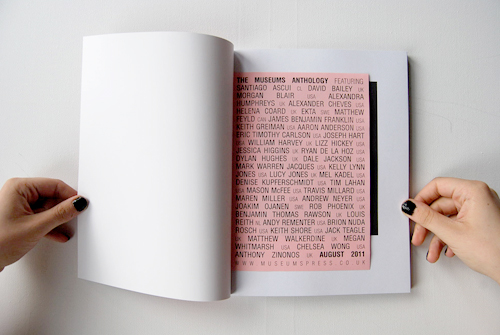 THE MUSEUMS ANTHOLOGY FEATURING
SANTIAGO ASCUI CL DAVID BAILEY UK
MORGAN BLAIR USA ALEXANDRA
HUMPHREYS UK ALEXANDER CHEVES USA
HELENA COARD UK EKTA SWE MATTHEW
FEYLD CAN JAMES BENJAMIN FRANKLIN USA
KEITH GREIMAN USA AARON ANDERSON USA
ERIC TIMOTHY CARLSON USA JOSEPH HART
USA WILLIAM HARVEY UK LIZZ HICKEY USA
JESSICA HIGGINS UK RYAN DE LA HOZ USA
DYLAN HUGHES UK DALE JACKSON USA
MARK WARREN JACQUES USA KELLY LYNN
JONES USA LUCY JONES UK MEL KADEL USA
DENISE KUPFERSCHMIDT USA TIM LAHAN
USA MASON MCFEE USA TRAVIS MILLARD USA
MAREN MILLER USA ANDREW NEYER USA
JOAKIM OJANEN SWE ROB PHOENIX UK
BENJAMIN THOMAS RAWSON UK LOUIS
REITH NL ANDY REMENTER USA BRIAN NUDA
ROSCH USA KEITH SHORE USA JACK TEAGLE
UK MATTHEW WALKERDINE UK MEGAN
WHITMARSH USA CHELSEA WONG USA
ANTHONY ZINONOS UK AUGUST 2011
WWW.MUSEUMSPRESS.CO.UK